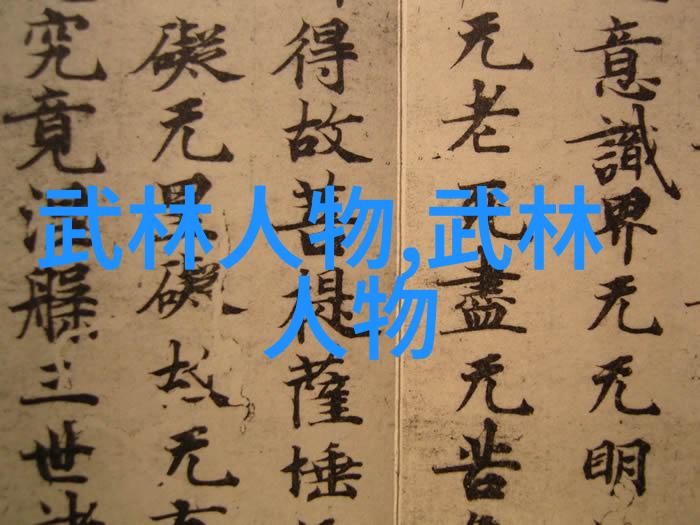 武林人物,武林
人物
意識界无无明
无老死盡无苦
得故菩提薩埵
礙无罣礙故无有
究竟涅槃三世諸